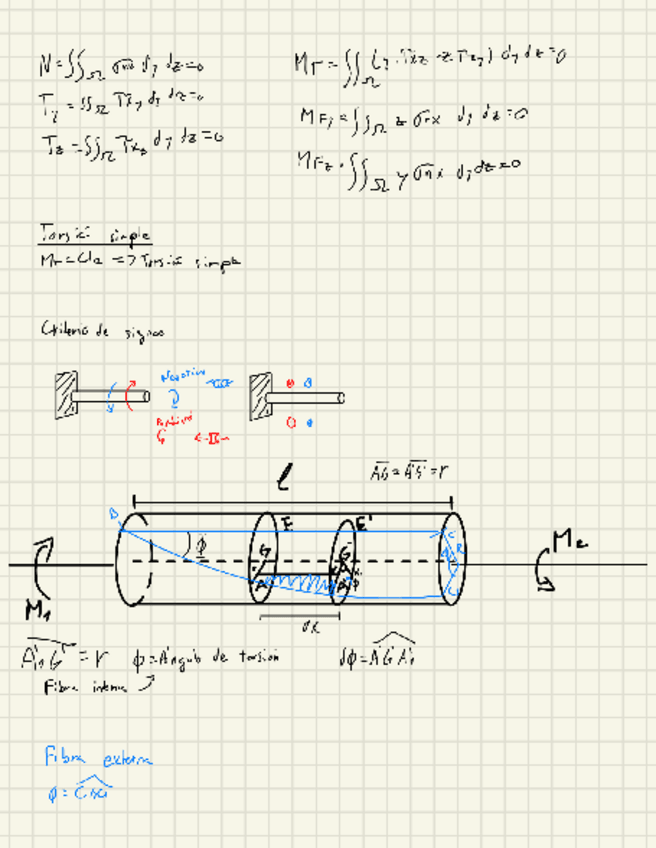 N = ∬Ω σnx dy dz = 0
Ty = ∬Ω τxy dy dz = 0
Tz = ∬Ω τxz dy dz = 0
MT = ∬Ω (y·τxz - z·τxy) dy dz = 0
MFy = ∬Ω z σnx dy dz = 0
MFz = ∬Ω y σnx dy dz = 0
Torsió simple
MT = Cte => Torsió simple
Criterio de signos
Negativo
Positivo
l
AG = A'G' = r
B
E E'
G G'
A A'
Φ
C
M1
M2
dx
A'1G' = r
ϕ = Angulo de torsion
dϕ = A'G'A'1
Fibra interna
Fibra externa